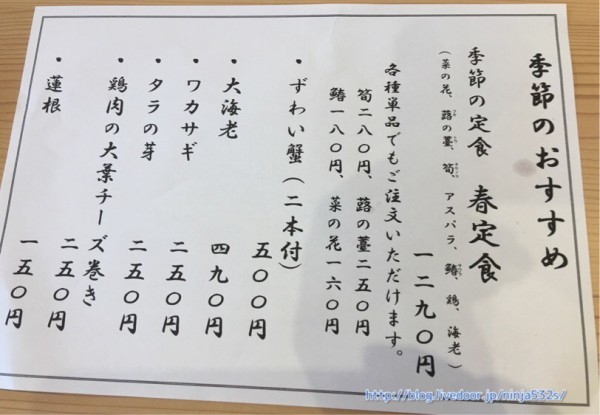 季節のおすすめ
季節の定食 春定食
(菜の花、蕗の薹、筍、アスパラ、鰆、鶏、海老)
一二九〇円
各種単品でもご注文いただけます。
筍二八〇円、蕗の薹二五〇円
鰆一八〇円、菜の花一六〇円
・ずわい蟹(二本付) 五〇〇円
・大海老 四九〇円
・ワカサギ 二五〇円
・タラの芽 二五〇円
・鶏肉の大葉チーズ巻き 二五〇円
・蓮根 一五〇円
http://blog.livedoor.jp/ninja532s/